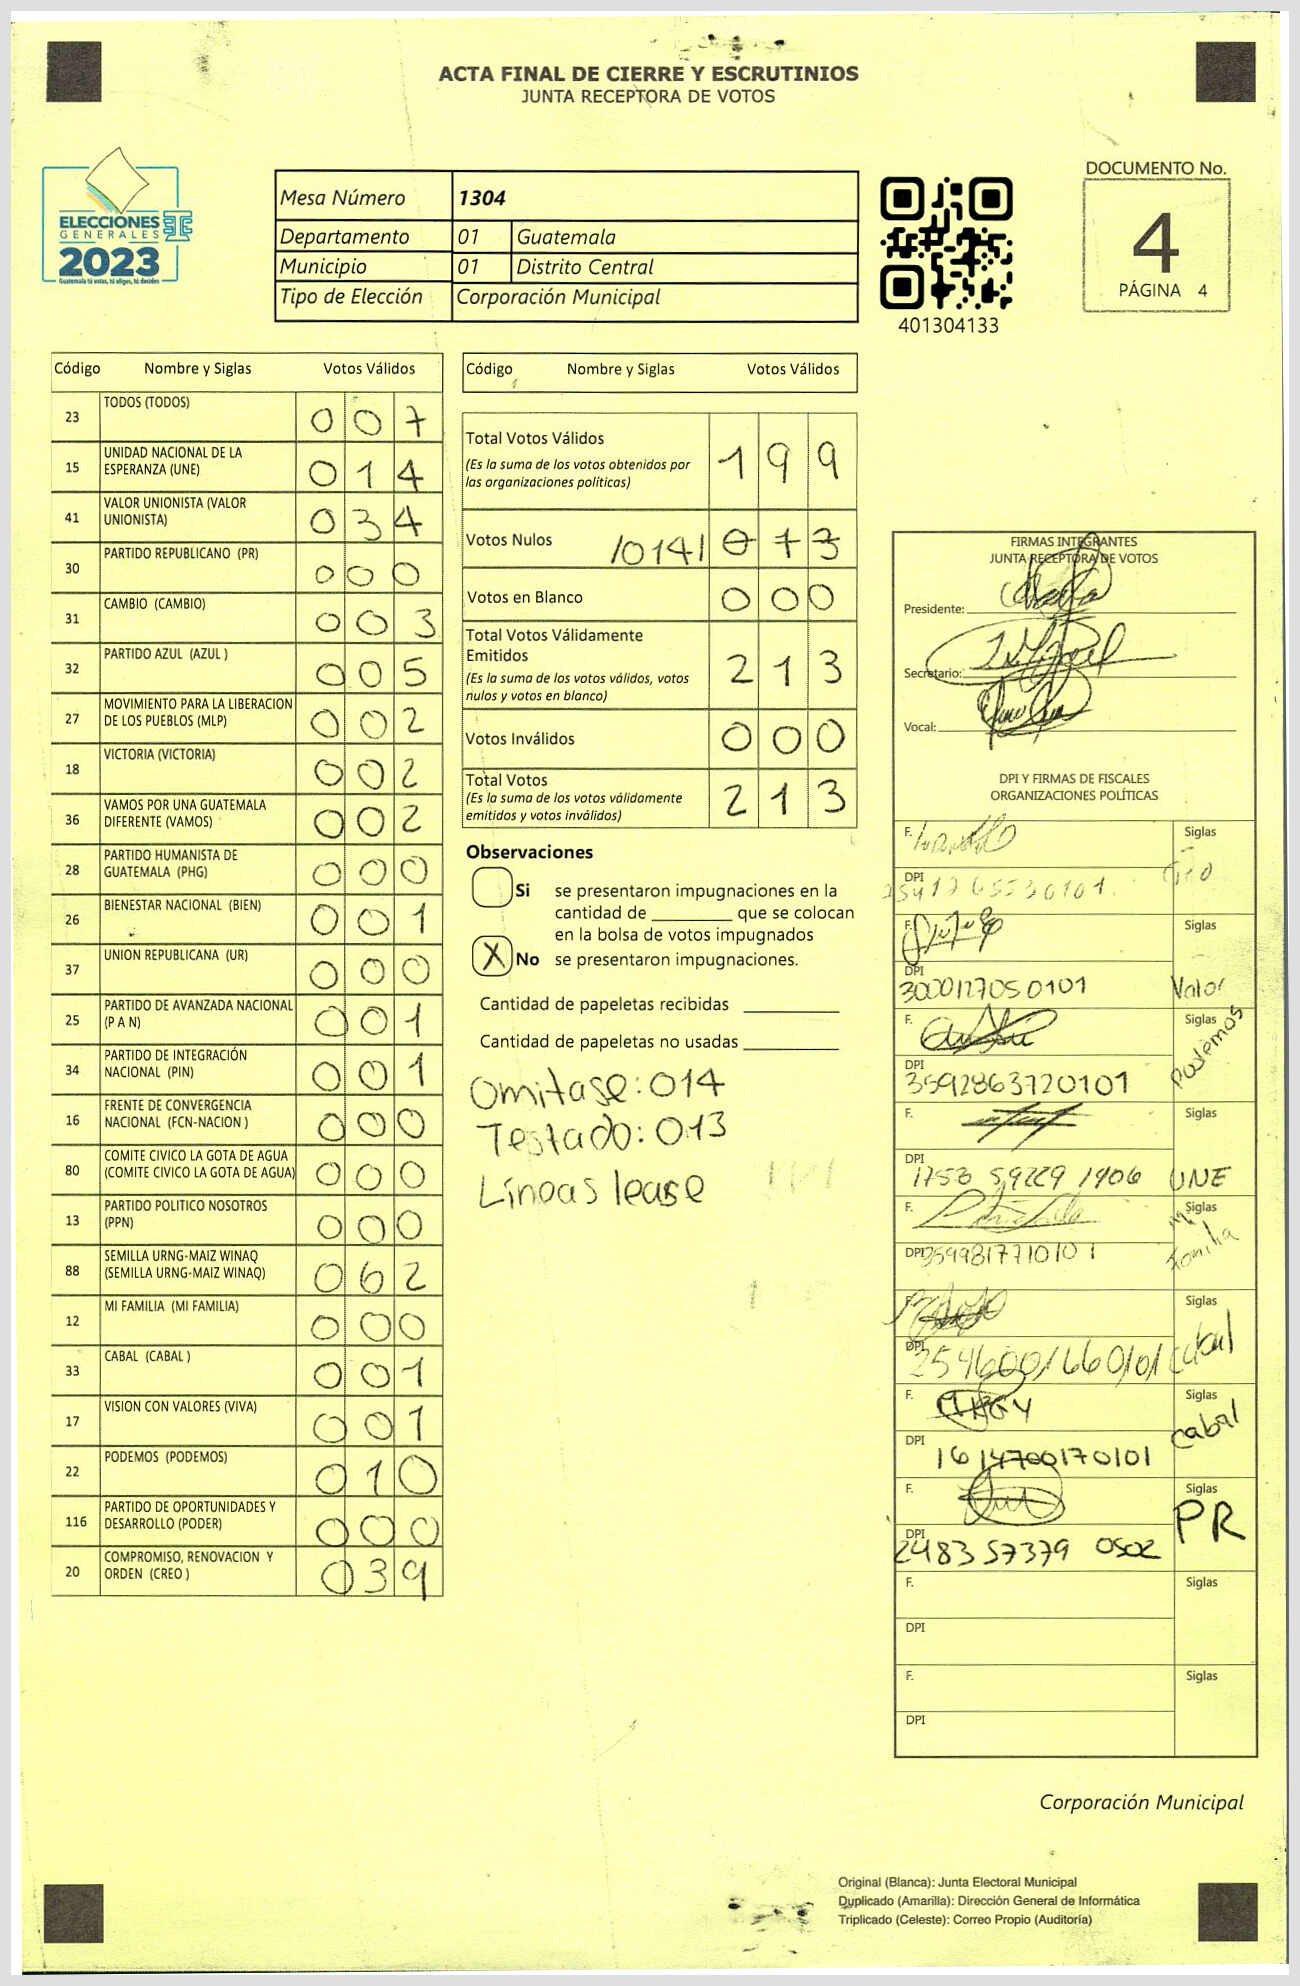 ACTA FINAL DE CIERRE Y ESCRUTINIOS
JUNTA RECEPTORA DE VOTOS
ELECCIONES
GENERALES
2023
Guatemala tú votas, tú eliges, tú decides
Mesa Número 1304
Departamento 01 Guatemala
Municipio 01 Distrito Central
Tipo de Elección Corporación Municipal
401304133
DOCUMENTO No.
4
PÁGINA 4
Código Nombre y Siglas Votos Válidos
23 TODOS (TODOS) 0 0 7
15 UNIDAD NACIONAL DE LA ESPERANZA (UNE) 0 1 4
41 VALOR UNIONISTA (VALOR UNIONISTA) 0 3 4
30 PARTIDO REPUBLICANO (PR) 0 0 0
31 CAMBIO (CAMBIO) 0 0 3
32 PARTIDO AZUL (AZUL ) 0 0 5
27 MOVIMIENTO PARA LA LIBERACION DE LOS PUEBLOS (MLP) 0 0 2
18 VICTORIA (VICTORIA) 0 0 2
36 VAMOS POR UNA GUATEMALA DIFERENTE (VAMOS) 0 0 2
28 PARTIDO HUMANISTA DE GUATEMALA (PHG) 0 0 0
26 BIENESTAR NACIONAL (BIEN) 0 0 1
37 UNION REPUBLICANA (UR) 0 0 0
25 PARTIDO DE AVANZADA NACIONAL (P A N) 0 0 1
34 PARTIDO DE INTEGRACIÓN NACIONAL (PIN) 0 0 1
16 FRENTE DE CONVERGENCIA NACIONAL (FCN-NACION ) 0 0 0
80 COMITE CIVICO LA GOTA DE AGUA (COMITE CIVICO LA GOTA DE AGUA) 0 0 0
13 PARTIDO POLITICO NOSOTROS (PPN) 0 0 0
88 SEMILLA URNG-MAIZ WINAQ (SEMILLA URNG-MAIZ WINAQ) 0 6 2
12 MI FAMILIA (MI FAMILIA) 0 0 0
33 CABAL (CABAL ) 0 0 1
17 VISION CON VALORES (VIVA) 0 0 1
22 PODEMOS (PODEMOS) 0 1 0
116 PARTIDO DE OPORTUNIDADES Y DESARROLLO (PODER) 0 0 0
20 COMPROMISO, RENOVACION Y ORDEN (CREO ) 0 3 9
Código Nombre y Siglas Votos Válidos
Total Votos Válidos 1 9 9
(Es la suma de los votos obtenidos por
las organizaciones políticas)
Votos Nulos /014/ 0 1 3
Votos en Blanco 0 0 0
Total Votos Válidamente
Emitidos 2 1 3
(Es la suma de los votos válidos, votos
nulos y votos en blanco)
Votos Inválidos 0 0 0
Total Votos 2 1 3
(Es la suma de los votos válidamente
emitidos y votos inválidos)
Observaciones
Si se presentaron impugnaciones en la
cantidad de ________ que se colocan
en la bolsa de votos impugnados
X No se presentaron impugnaciones.
Cantidad de papeletas recibidas __________
Cantidad de papeletas no usadas __________
Omitase: 014
Testado: 013
Líneas lease
FIRMAS INTEGRANTES
JUNTA RECEPTORA DE VOTOS
Presidente:
Secretario:
Vocal:
DPI Y FIRMAS DE FISCALES
ORGANIZACIONES POLÍTICAS
F. Siglas
DPI
F. Siglas
DPI 3000127050101 Valor
F. Siglas
DPI 3592863720101 Podemos
F. Siglas
DPI 1753 59229 1906 UNE
F. Siglas
DPI 3599817710101 mi Familia
F. Siglas
DPI 2546001660101 Cabal
F. Siglas
DPI 1614700170101 Cabal
F. Siglas
DPI 2483 57379 0502 PR
F. Siglas
DPI
F. Siglas
DPI
Corporación Municipal
Original (Blanca): Junta Electoral Municipal
Duplicado (Amarilla): Dirección General de Informática
Triplicado (Celeste): Correo Propio (Auditoría)